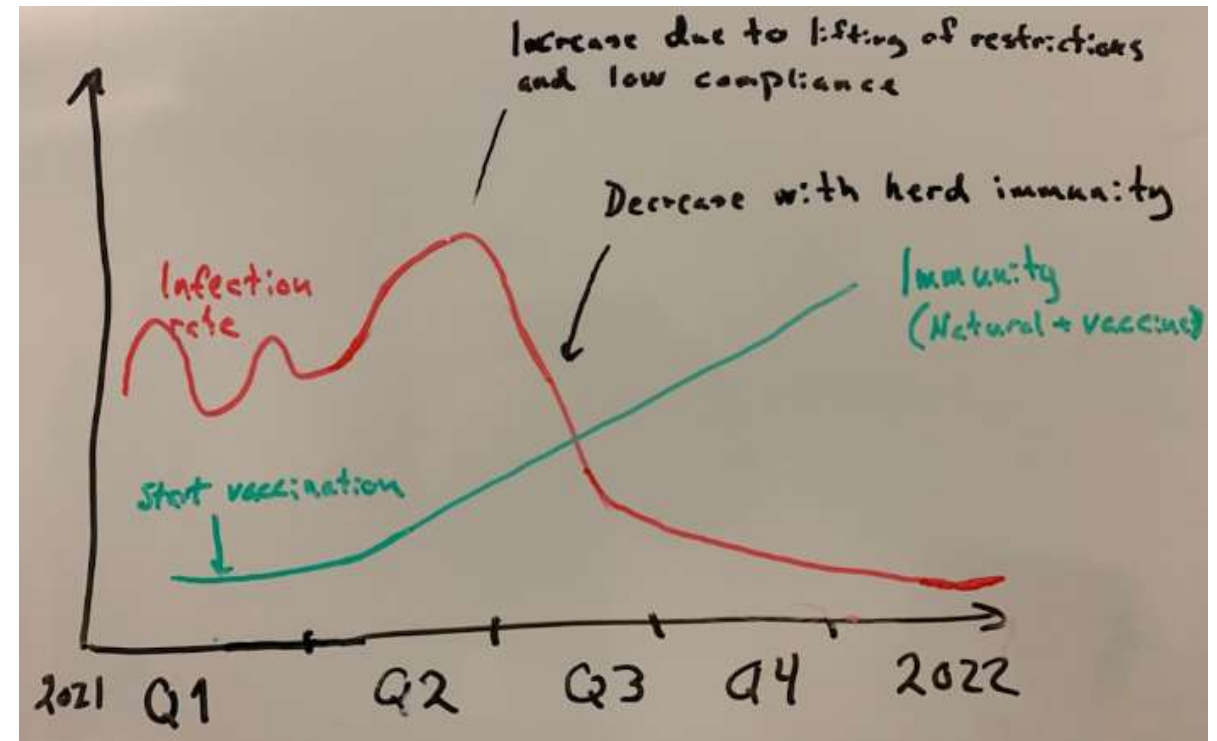 Increase due to lifting of restrictions
and low compliance
Decrease with herd immunity
Infection
rate
Immunity
(Natural + vaccine)
Start vaccination
2021 Q1 Q2 Q3 Q4 2022